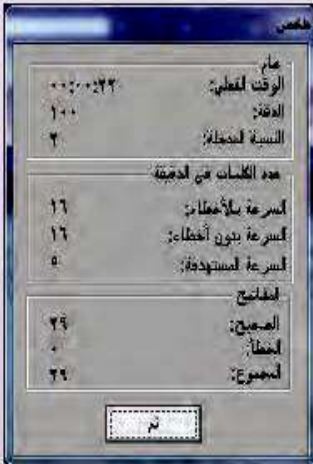 ملخص
عام
الوقت الفعلي: ٠٠:٠٠:٢٢
الدقة: ١٠٠
النسبة المدخلة: ٢
عدد الكلمات في الدقيقة
السرعة بالأخطاء: ١٦
السرعة بدون أخطاء: ١٦
السرعة المستهدفة: ٥
المفاتيح
الصحيح: ٢٩
الخطأ: ٠
المجموع: ٢٩
تم